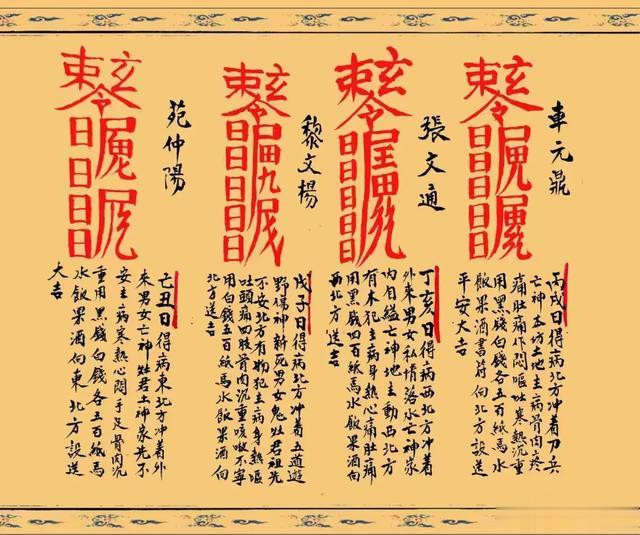 車元鼎
丙戌日得病北方冲着刀兵
亡神五坊土地主病骨肉疼
痛肚痛作悶嘔吐寒熱沉重
用黑錢白錢各五百紙馬水
飯果酒書符向北方設送
平安大吉
張文通
丁亥日得病西北方冲着
外來男女私情落水亡神家
内自縊亡神地主動西北方
有木犯主病身熱心痛肚痛
用黑錢四百紙馬水飯果酒向
西北方送吉
黎文楊
戊子日得病北方冲着五道遊
野傷神新死男女鬼灶君祖先
不安北方有物犯主病身熱嘔
吐頭痛四肢骨肉沉重咳嗽不寧
用白錢五百紙馬水飯果酒向
北方送吉
苑仲陽
己丑日得病東北方冲着外
來男女亡神灶君土神家先不
安主病寒熱心悶手足骨肉沉
重用黑錢白錢各五百紙馬
水飯果酒向東北方設送
大吉